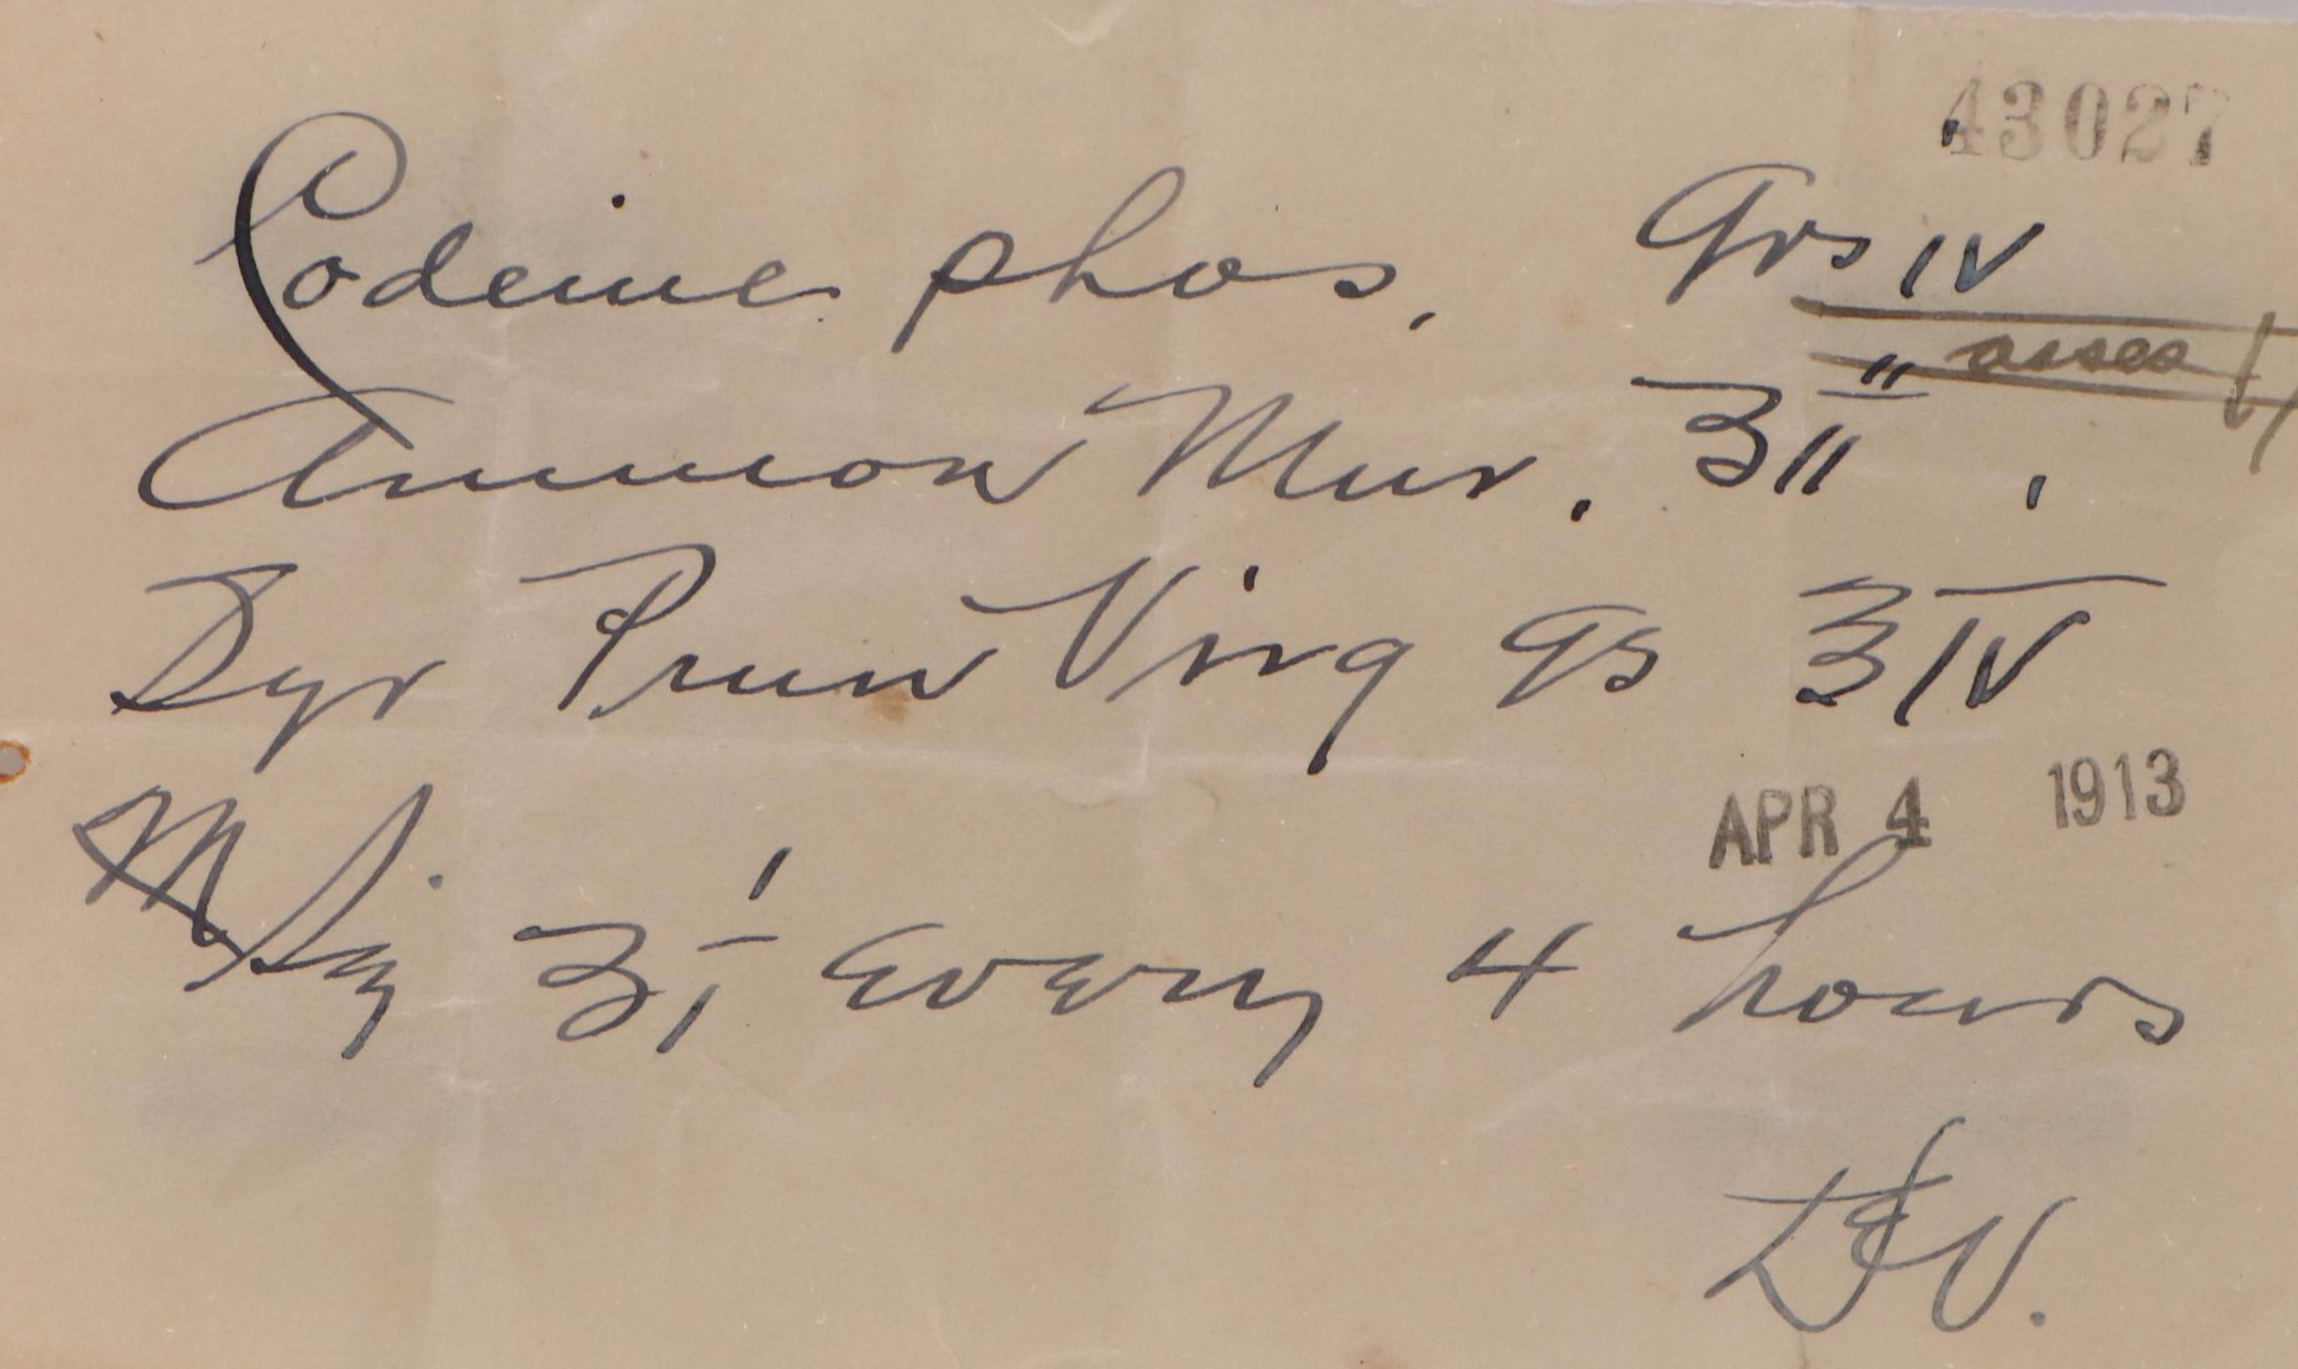 43027
Codeine phos. grs IV
Ammon Mur. ʒii
Syr Prun Virg qs ℥IV
APR 4 1913
M Sig ʒi every 4 hours